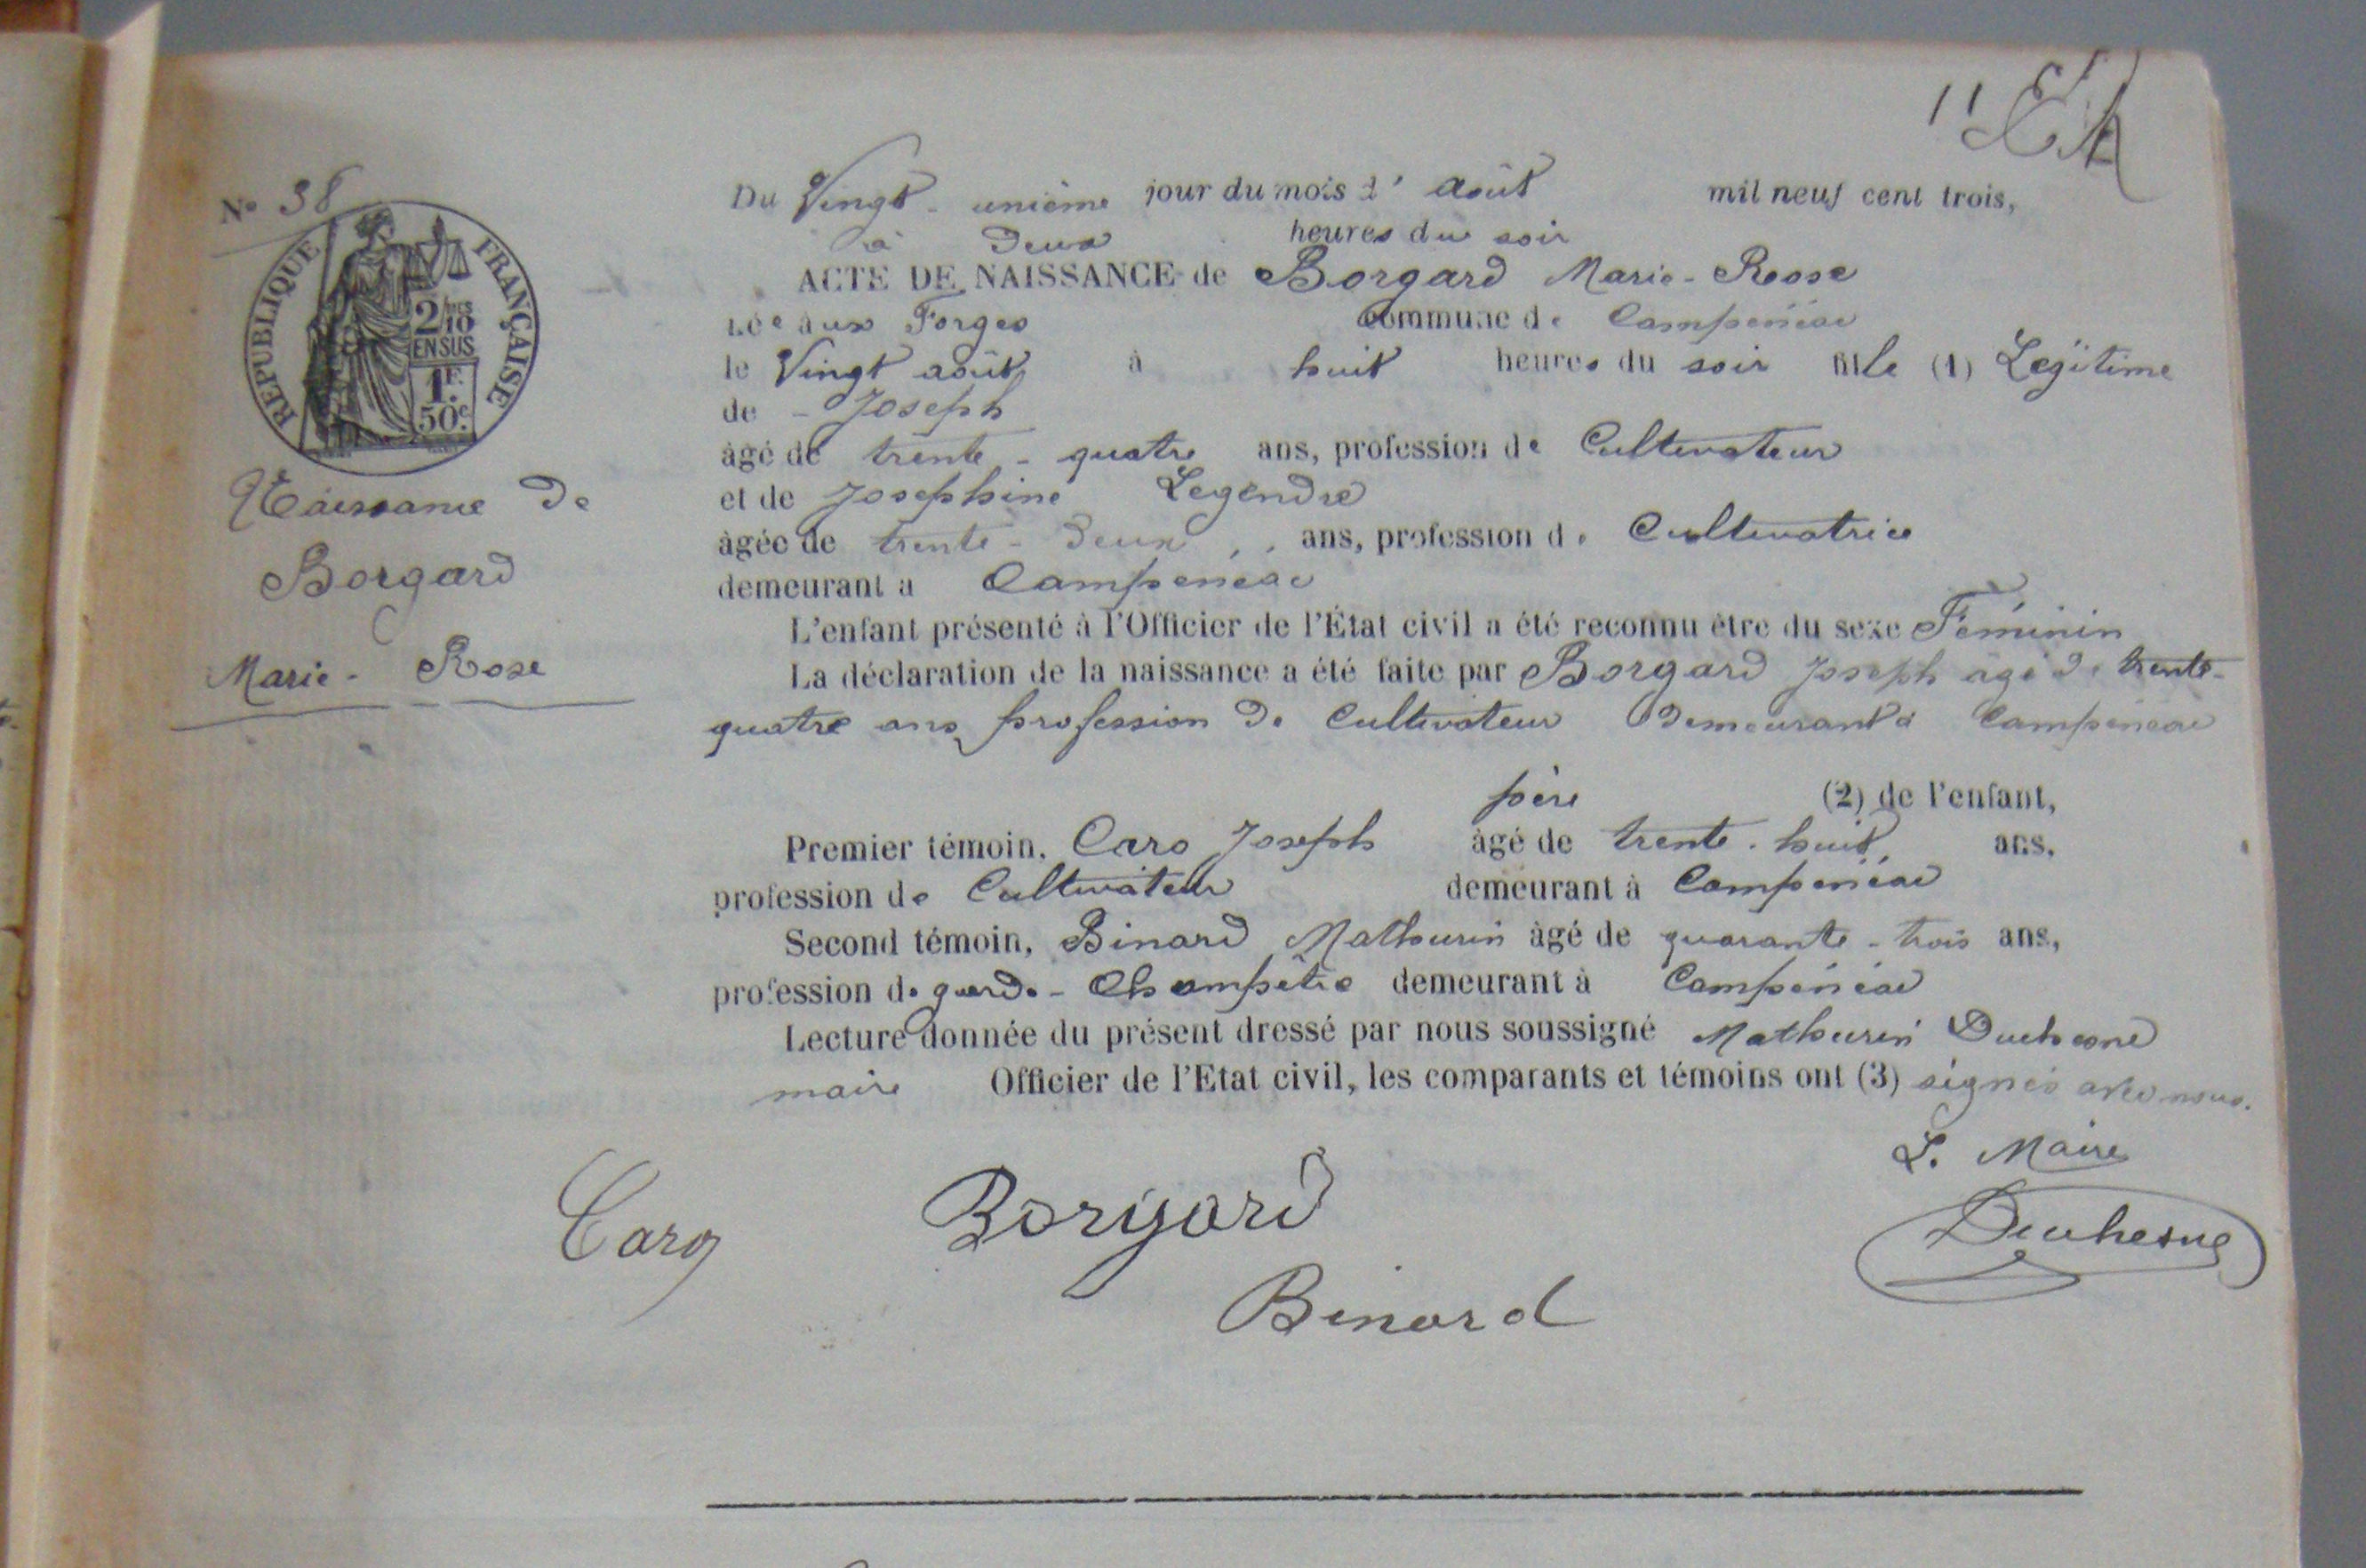 11
N° 38
RÉPUBLIQUE FRANÇAISE
2/10 EN SUS
1F. 50c.
Naissance de
Borgard
Marie-Rose
Du Vingt-unième jour du mois d'août mil neuf cent trois,
à deux heures du soir
ACTE DE NAISSANCE de Borgard Marie-Rose
née aux Forges commune de Campénéac
le Vingt août à huit heures du soir fille (1) Légitime
de - Joseph
âgé de trente-quatre ans, profession de Cultivateur
et de Joséphine Legendre
âgée de trente-deux ans, profession de Cultivatrice
demeurant à Campénéac
L'enfant présenté à l'Officier de l'État civil a été reconnu être du sexe Féminin
La déclaration de la naissance a été faite par Borgard Joseph âgé de trente-
quatre ans, profession de Cultivateur demeurant à Campénéac
père (2) de l'enfant,
Premier témoin, Caro Joseph âgé de trente-huit ans,
profession de Cultivateur demeurant à Campénéac
Second témoin, Binard Mathurin âgé de quarante-trois ans,
profession de garde-Champêtre demeurant à Campénéac
Lecture donnée du présent dressé par nous soussigné Mathurin Duchesne
maire Officier de l'Etat civil, les comparants et témoins ont (3) signés avec nous.
L. Maire
Caro Borgard Duchesne
Binard